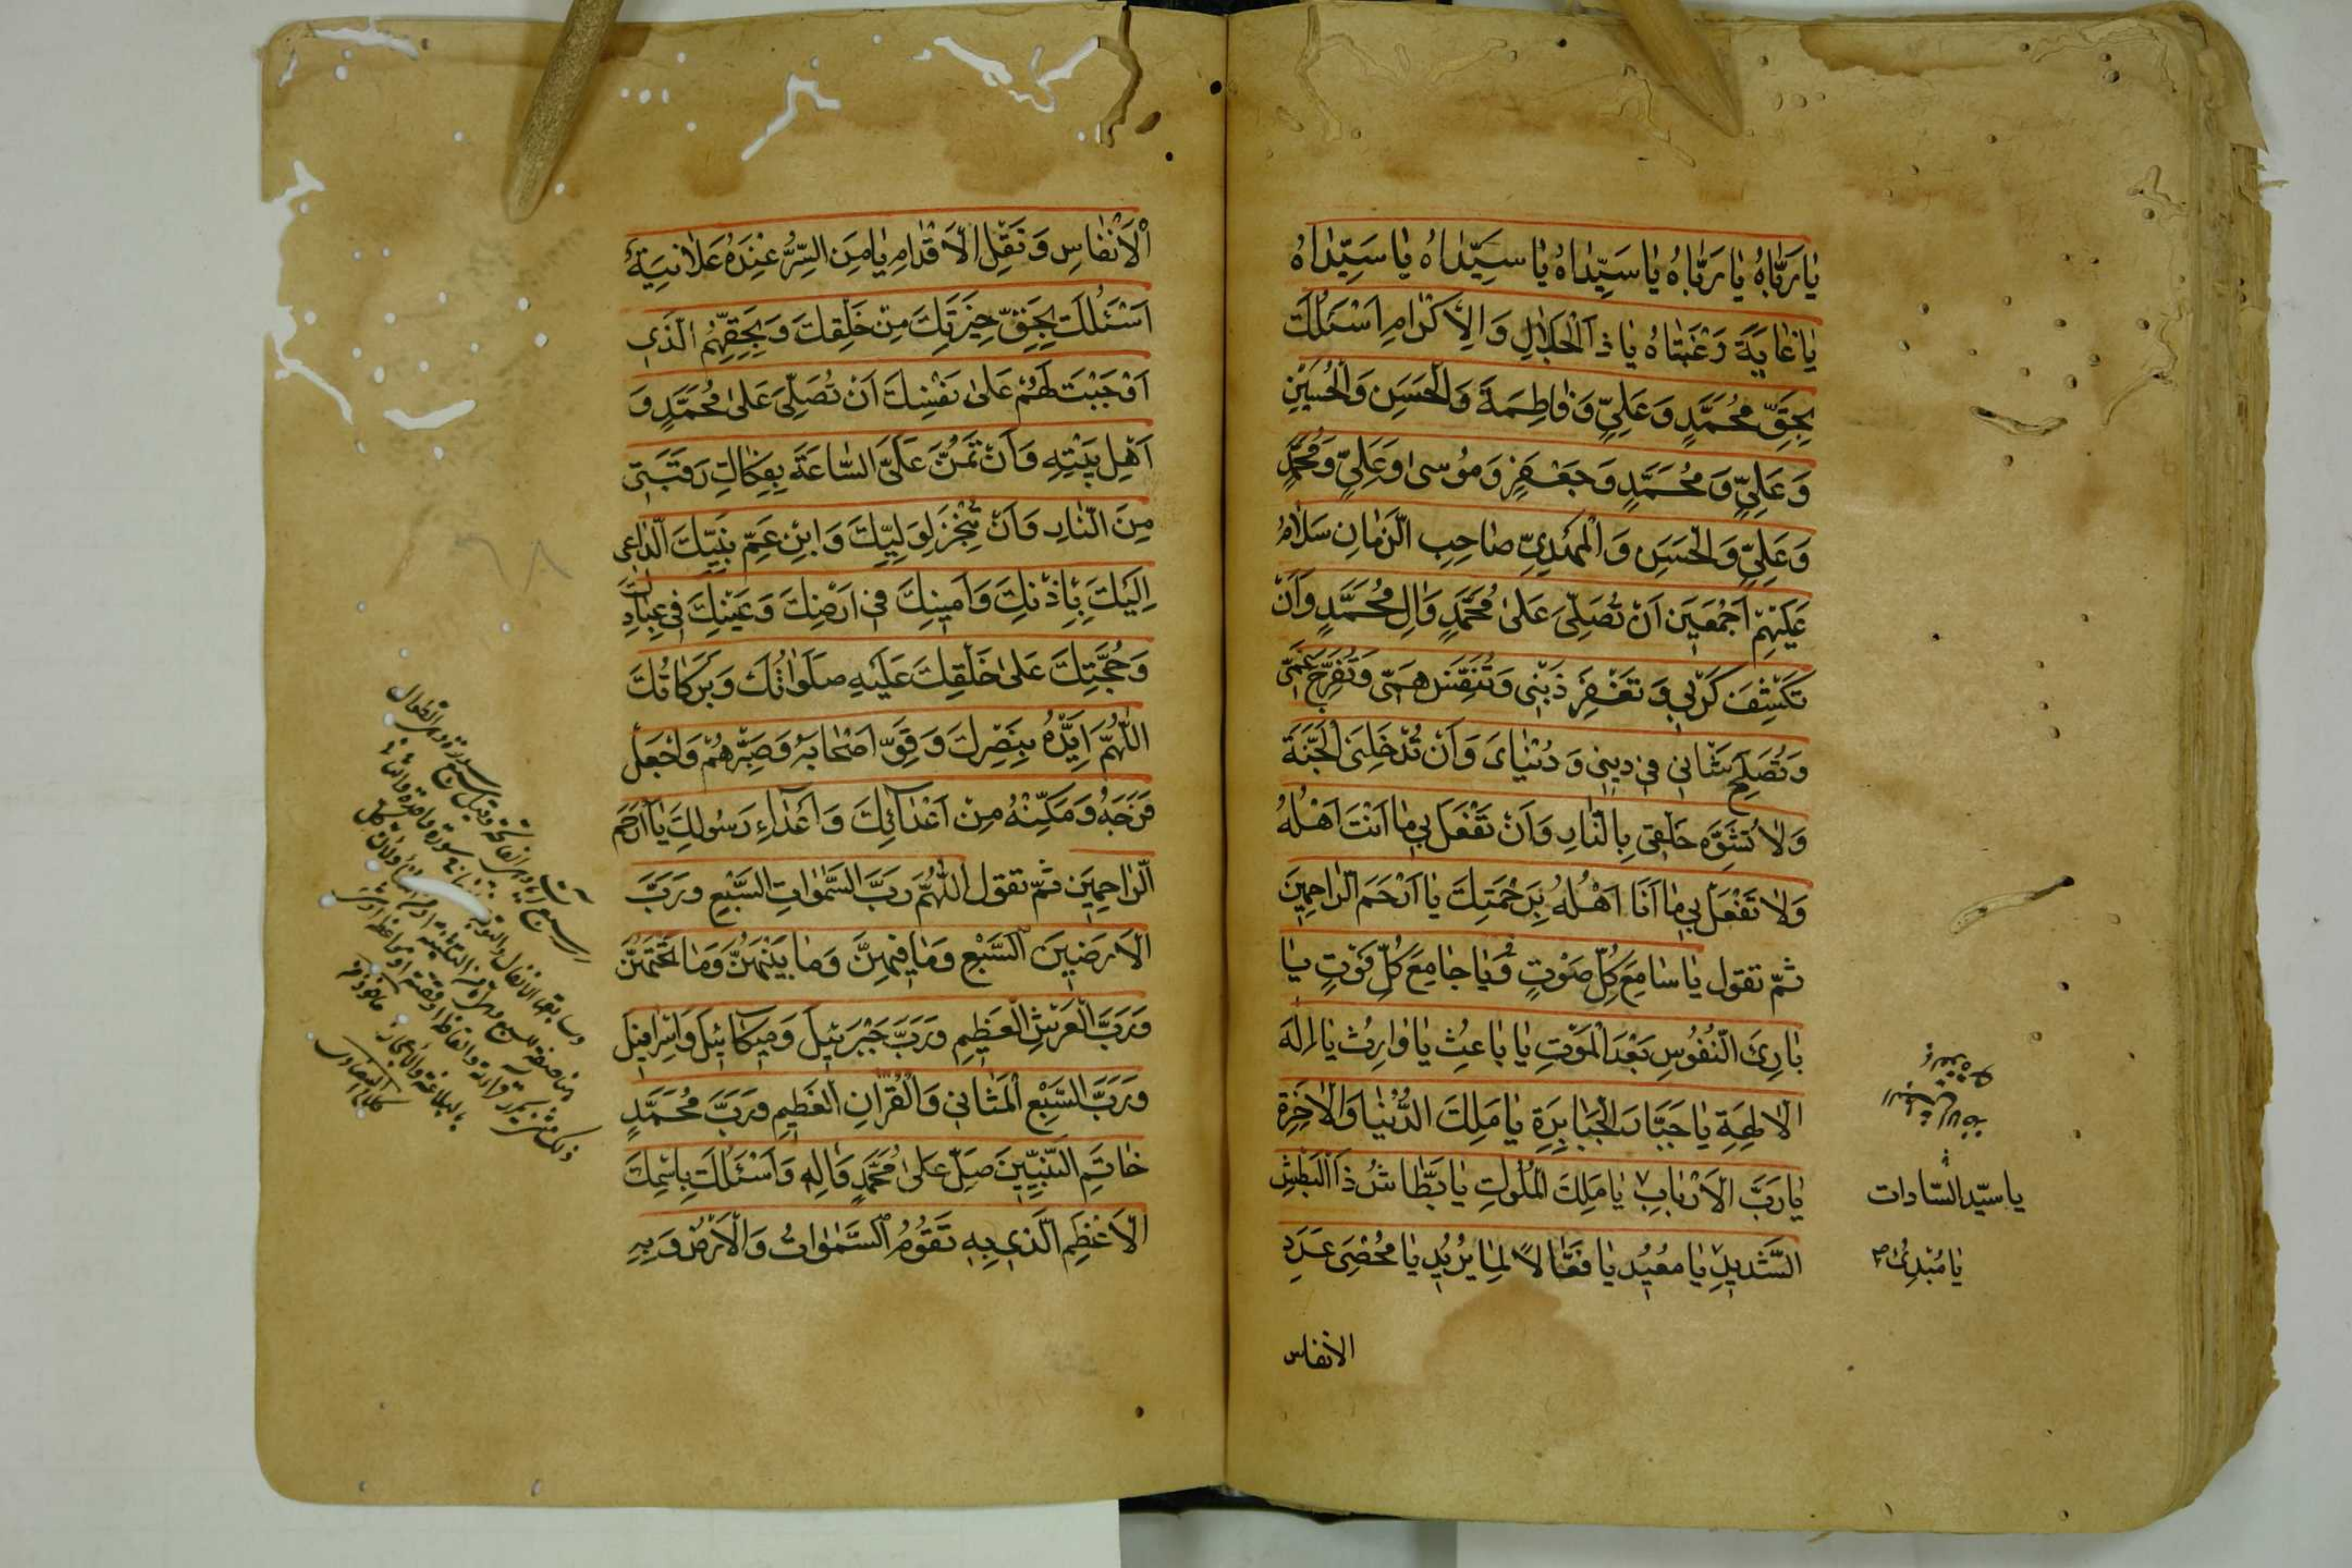 يٰا رَبّٰاهُ يٰا رَبّٰاهُ يٰا سَيِّدٰاهُ يٰا سَيِّدٰاهُ يٰا سَيِّدٰاهُ
يٰا غٰايَةَ رَغْبَتٰاهُ يٰا ذَا الْجَلٰالِ وَالْاِكْرٰامِ اَسْئَلُكَ
بِحَقِّ مُحَمَّدٍ وَعَلِيٍّ وَفٰاطِمَةَ وَالْحَسَنِ وَالْحُسَيْنِ
وَعَلِيٍّ وَمُحَمَّدٍ وَجَعْفَرٍ وَمُوسىٰ وَعَلِيٍّ وَمُحَمَّدٍ
وَعَلِيٍّ وَالْحَسَنِ وَالْمَهْدِيِّ صٰاحِبِ الزَّمٰانِ سَلٰامُ
عَلَيْهِمْ اَجْمَعِينَ اَنْ تُصَلِّيَ عَلىٰ مُحَمَّدٍ وَاٰلِ مُحَمَّدٍ وَاَنْ
تَكْشِفَ كَرْبِي وَتَغْفِرَ ذَنْبِي وَتُنَفِّسَ هَمِّي وَتُفَرِّجَ غَمِّي
وَتُصْلِحَ شَانِي فِي دِينِي وَدُنْيٰايَ وَاَنْ تُدْخِلَنِي الْجَنَّةَ
وَلٰا تُشَوِّهَ خَلْقِي بِالنّٰارِ وَاَنْ تَفْعَلَ بِي مٰا اَنْتَ اَهْلُهُ
وَلٰا تَفْعَلْ بِي مٰا اَنَا اَهْلُهُ بِرَحْمَتِكَ يٰا اَرْحَمَ الرّٰاحِمِينَ
ثمّ تقول يٰا سٰامِعَ كُلِّ صَوْتٍ وَيٰا جٰامِعَ كُلِّ فَوْتٍ يٰا
بٰارِئَ النُّفُوسِ بَعْدَ الْمَوْتِ يٰا بٰاعِثُ يٰا وٰارِثُ يٰا اِلٰهَ
الْاٰلِهَةِ يٰا جَبّٰارَ الْجَبٰابِرَةِ يٰا مَلِكَ الدُّنْيٰا وَالْاٰخِرَةِ
يٰا رَبَّ الْاَرْبٰابِ يٰا مَلِكَ الْمُلُوكِ يٰا بَطّٰاشُ ذَا الْبَطْشِ
يا سيّد السّادات
الشَّدِيدِ يٰا مُعِيدُ يٰا فَعّٰالًا لِمٰا يُرِيدُ يٰا مُحْصِيَ عَدَدِ
يٰا مُبْدِئُ
الانفاس
الْاَنْفٰاسِ وَنَقْلِ الْاَقْدٰامِ يٰا مَنِ السِّرُّ عِنْدَهُ عَلٰانِيَةٌ
اَسْئَلُكَ بِحَقِّ خِيَرَتِكَ مِنْ خَلْقِكَ وَبِحَقِّهِمُ الَّذِي
اَوْجَبْتَ لَهُمْ عَلىٰ نَفْسِكَ اَنْ تُصَلِّيَ عَلىٰ مُحَمَّدٍ وَ
اَهْلِ بَيْتِهِ وَاَنْ تَمُنَّ عَلَيَّ السّٰاعَةَ بِفِكٰاكِ رَقَبَتِي
مِنَ النّٰارِ وَاَنْ تُنْجِزَ لِوَلِيِّكَ وَابْنِ عَمِّ نَبِيِّكَ الدّٰاعِي
اِلَيْكَ بِاِذْنِكَ وَاَمِينِكَ فِي اَرْضِكَ وَعَيْنِكَ فِي عِبٰادِكَ
وَحُجَّتِكَ عَلىٰ خَلْقِكَ عَلَيْهِ صَلَوٰاتُكَ وَبَرَكٰاتُكَ
اللّٰهُمَّ اَيِّدْهُ بِنَصْرِكَ وَقَوِّ اَصْحٰابَهُ وَصَبِّرْهُمْ وَاجْعَلْ
فَرَجَهُ وَمَكِّنْهُ مِنْ اَعْدٰائِكَ وَاَعْدٰاءِ رَسُولِكَ يٰا اَرْحَمَ
الرّٰاحِمِينَ ثمّ تقول اللّٰهُمَّ رَبَّ السَّمٰوٰاتِ السَّبْعِ وَرَبَّ
الْاَرَضِينَ السَّبْعِ وَمٰا فِيهِنَّ وَمٰا بَيْنَهُنَّ وَمٰا تَحْتَهُنَّ
وَرَبَّ الْعَرْشِ الْعَظِيمِ وَرَبَّ جَبْرَئِيلَ وَمِيكٰائِيلَ وَاِسْرٰافِيلَ
وَرَبَّ السَّبْعِ الْمَثٰانِي وَالْقُرْاٰنِ الْعَظِيمِ وَرَبَّ مُحَمَّدٍ
خٰاتَمِ النَّبِيِّينَ صَلِّ عَلىٰ مُحَمَّدٍ وَاٰلِهِ وَاَسْئَلُكَ بِاسْمِكَ
الْاَعْظَمِ الَّذِي بِهِ تَقُومُ السَّمٰوٰاتُ وَالْاَرْضُ وَبِهِ